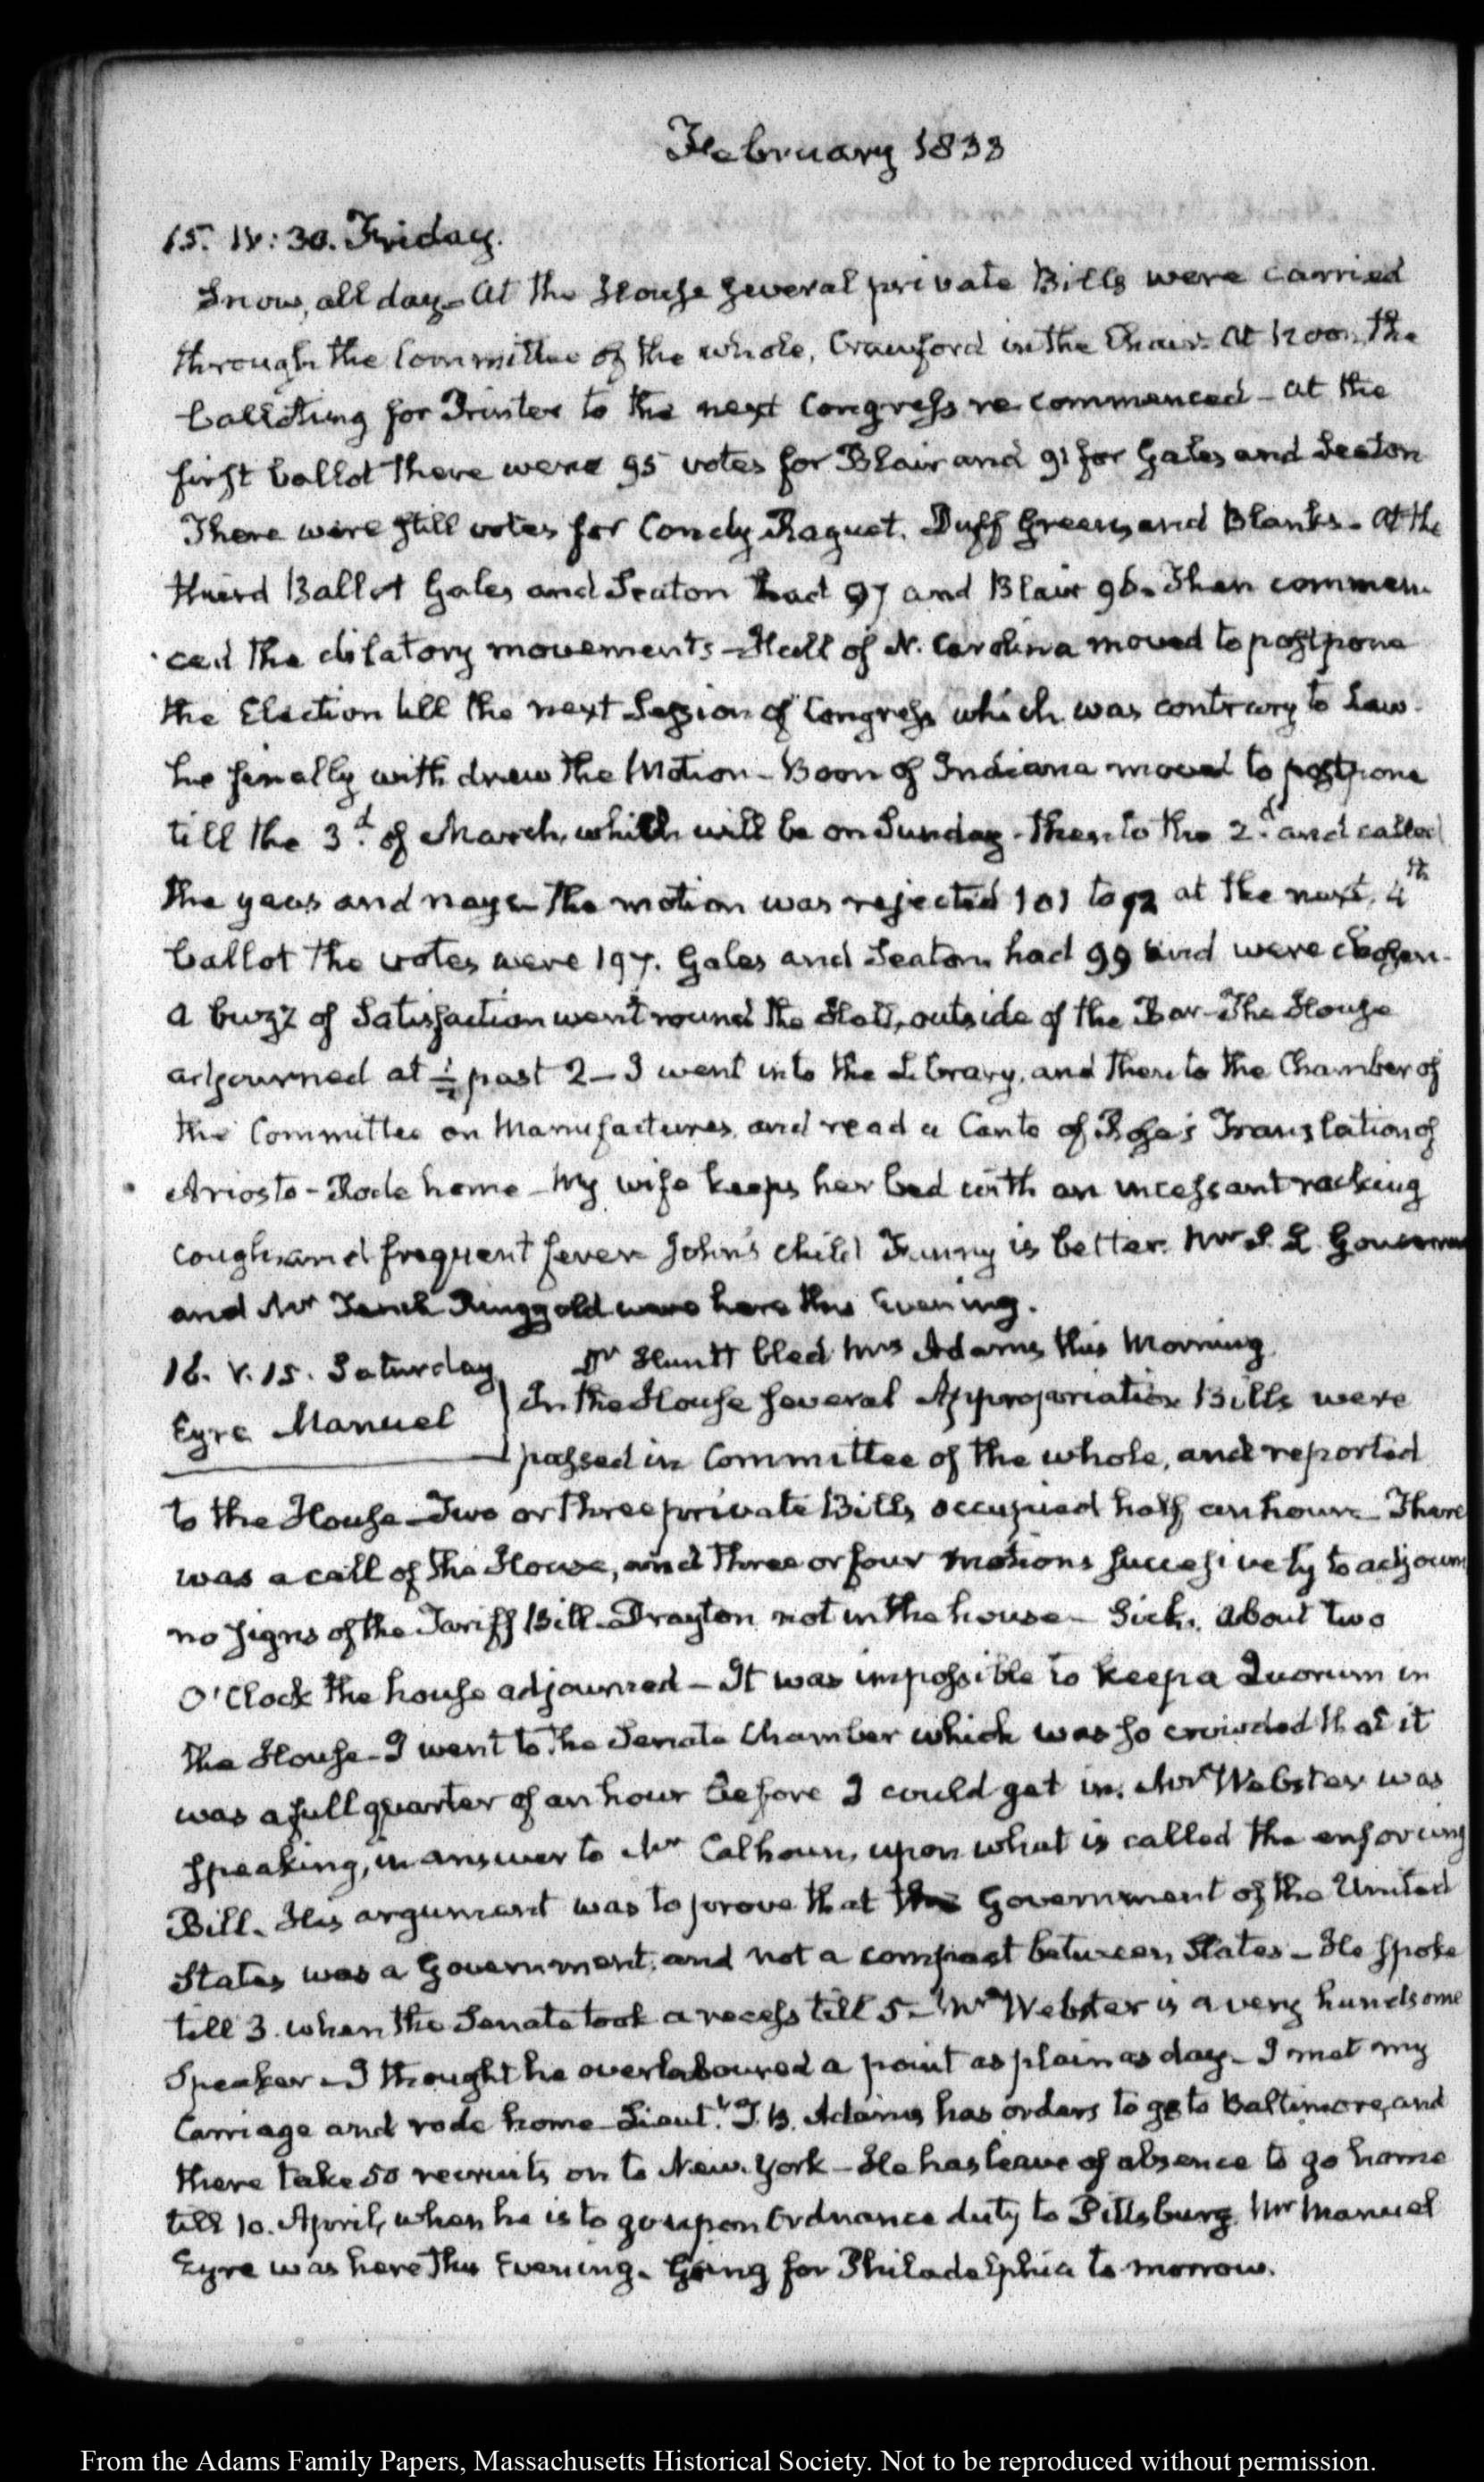 February 1833
15. IV:30. Friday.
Snow, all day - At the House several private Bills were carried
through the Committee of the whole, Crawford in the Chair. At noon, the
ballotting for Printer to the next Congress recommenced - at the
first ballot there were 95 votes for Blair and 91 for Gales and Seaton
There were still votes for Condy Raguet, Duff Green, and Blanks - At the
third Ballot Gales and Seaton had 97 and Blair 96. Then commen-
ced the dilatory movements - Hall of N. Carolina moved to postpone
the Election till the next Session of Congress which was contrary to Law.
he finally withdrew the Motion - Boon of Indiana moved to postpone
till the 3d. of March, which will be on Sunday - then to the 2d. and called
the yeas and nays - the motion was rejected 101 to 92 at the next, 4th
ballot the votes were 197. Gales and Seaton had 99 and were chosen -
a buzz of Satisfaction went round the Hall, outside of the Bar - The House
adjourned at ½ past 2 - I went into the Library, and then to the Chamber of
the Committee on Manufactures, and read a Canto of Rose's Translation of
Ariosto - Rode home - My wife keeps her bed with an incessant racking
cough, and frequent fever John's child Fanny is better. Mr S. L. Gouverneur
and Mr Tench Ringgold were here this Evening.
16. V.15. Saturday Dr Huntt bled Mrs Adams this Morning
Eyre Manuel In the House several Appropriation Bills were
passed in Committee of the whole, and reported
to the House - Two or three private Bills occupied half an hour - There
was a call of the House, and three or four motions successively to adjourn
no signs of the Tariff Bill - Drayton not in the house - Sick. About two
O'Clock the house adjourned - It was impossible to keep a Quorum in
the House - I went to the Senate Chamber which was so crowded that it
was a full quarter of an hour before I could get in. Mr Webster was
speaking, in answer to Mr Calhoun, upon what is called the enforcing
Bill. His argument was to prove that the Government of the United
States was a Government, and not a compact between States - He spoke
till 3. when the Senate took a recess till 5 - Mr Webster is a very handsome
Speaker - I thought he overlaboured a point as plain as day - I met my
Carriage and rode home - Lieutt. T. B. Adams has orders to go to Baltimore, and
there take 50 recruits on to New York - He has leave of absence to go home
till 10. April, when he is to go upon Ordnance duty to Pittsburg. Mr Manuel
Eyre was here this Evening. Going for Philadelphia to morrow.
From the Adams Family Papers, Massachusetts Historical Society. Not to be reproduced without permission.